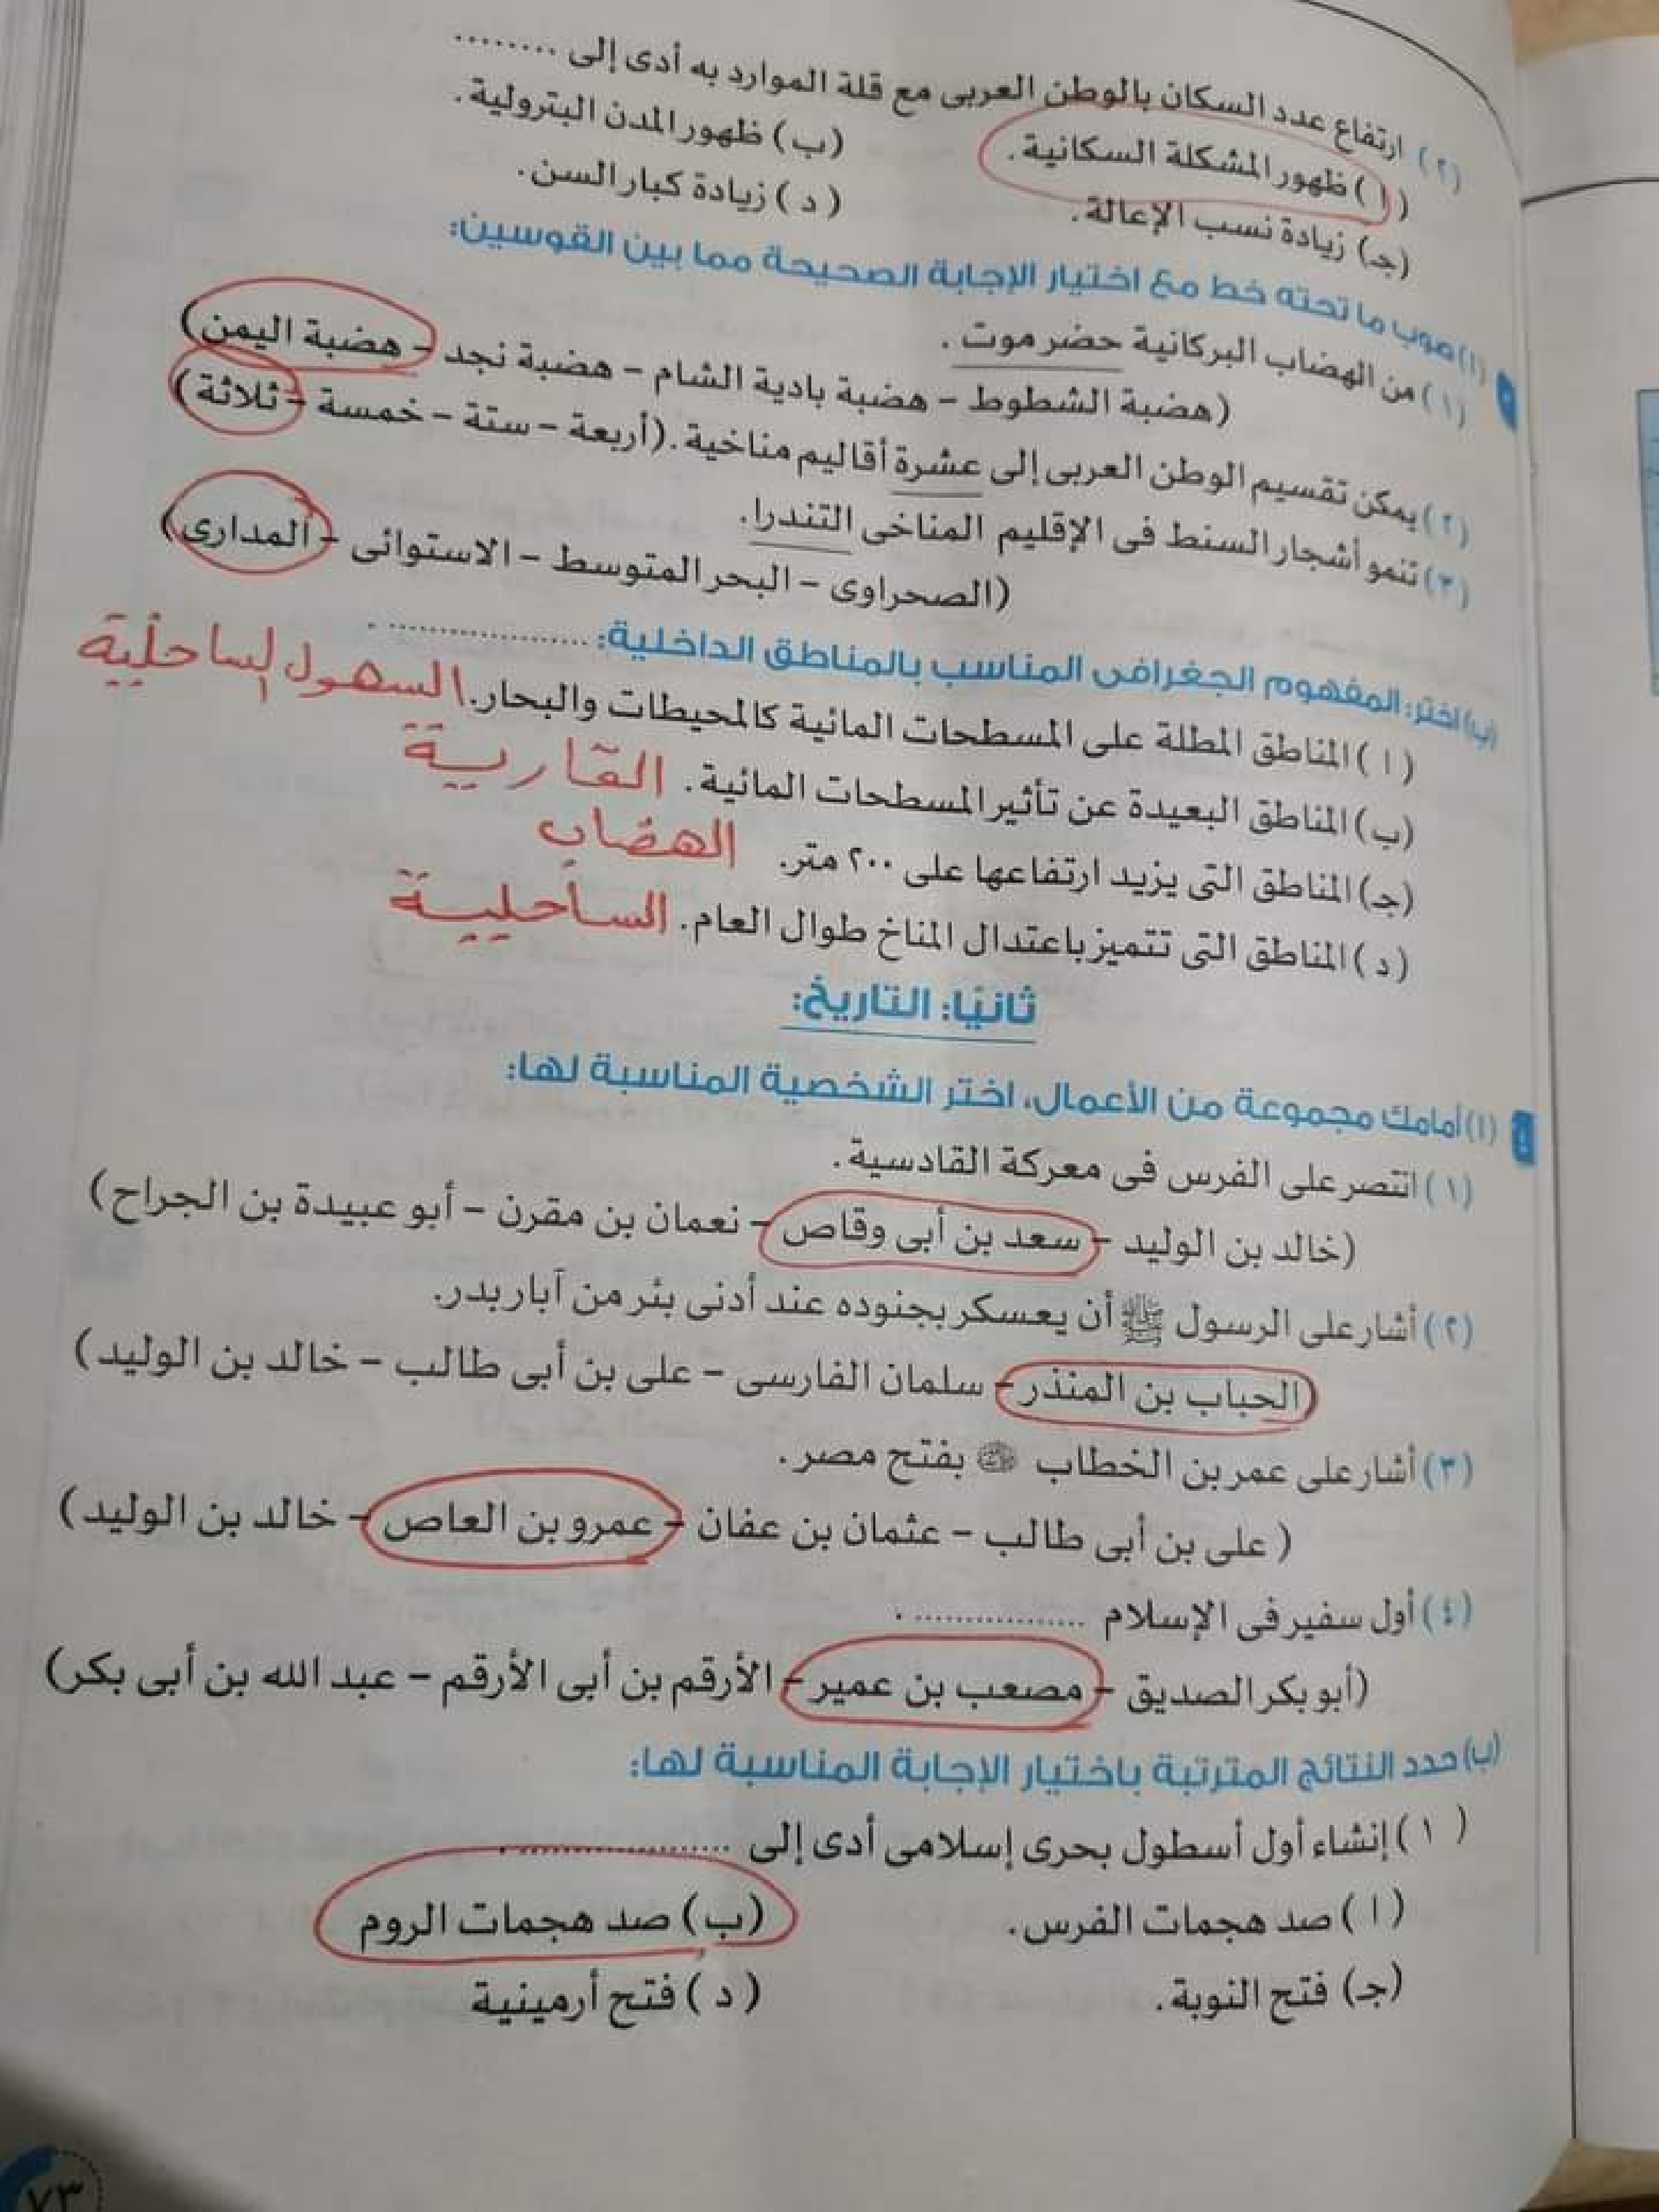 (٢) ارتفاع عدد السكان بالوطن العربى مع قلة الموارد به أدى إلى ........
(أ) ظهور المشكلة السكانية. (ب) ظهور المدن البترولية.
(جـ) زيادة نسب الإعالة. (د) زيادة كبار السن.
(أ) صوب ما تحته خط مع اختيار الإجابة الصحيحة مما بين القوسين:
(١) من الهضاب البركانية حضر موت.
(هضبة الشطوط - هضبة بادية الشام - هضبة نجد - هضبة اليمن)
(٢) يمكن تقسيم الوطن العربى إلى عشرة أقاليم مناخية. (أربعة - ستة - خمسة - ثلاثة)
(٣) تنمو أشجار السنط فى الإقليم المناخى التندرا.
(الصحراوى - البحر المتوسط - الاستوائى - المدارى)
(ب) اختر: المفهوم الجغرافى المناسب بالمناطق الداخلية: ....................
(أ) المناطق المطلة على المسطحات المائية كالمحيطات والبحار. السهول الساحلية
(ب) المناطق البعيدة عن تأثير المسطحات المائية. القارية
(جـ) المناطق التى يزيد ارتفاعها على ٢٠٠ متر. الهضاب
(د) المناطق التى تتميز باعتدال المناخ طوال العام. الساحلية
ثانيًا: التاريخ:
٤ (أ) أمامك مجموعة من الأعمال، اختر الشخصية المناسبة لها:
(١) انتصر على الفرس فى معركة القادسية.
(خالد بن الوليد - سعد بن أبى وقاص - نعمان بن مقرن - أبو عبيدة بن الجراح)
(٢) أشار على الرسول ﷺ أن يعسكر بجنوده عند أدنى بئر من آبار بدر.
(الحباب بن المنذر - سلمان الفارسى - على بن أبى طالب - خالد بن الوليد)
(٣) أشار على عمر بن الخطاب بفتح مصر.
(على بن أبى طالب - عثمان بن عفان - عمرو بن العاص - خالد بن الوليد)
(٤) أول سفير فى الإسلام ..................
(أبو بكر الصديق - مصعب بن عمير - الأرقم بن أبى الأرقم - عبد الله بن أبى بكر)
(ب) حدد النتائج المترتبة باختيار الإجابة المناسبة لها:
(١) إنشاء أول أسطول بحرى إسلامى أدى إلى ....................
(أ) صد هجمات الفرس. (ب) صد هجمات الروم
(جـ) فتح النوبة. (د) فتح أرمينية
٧٣